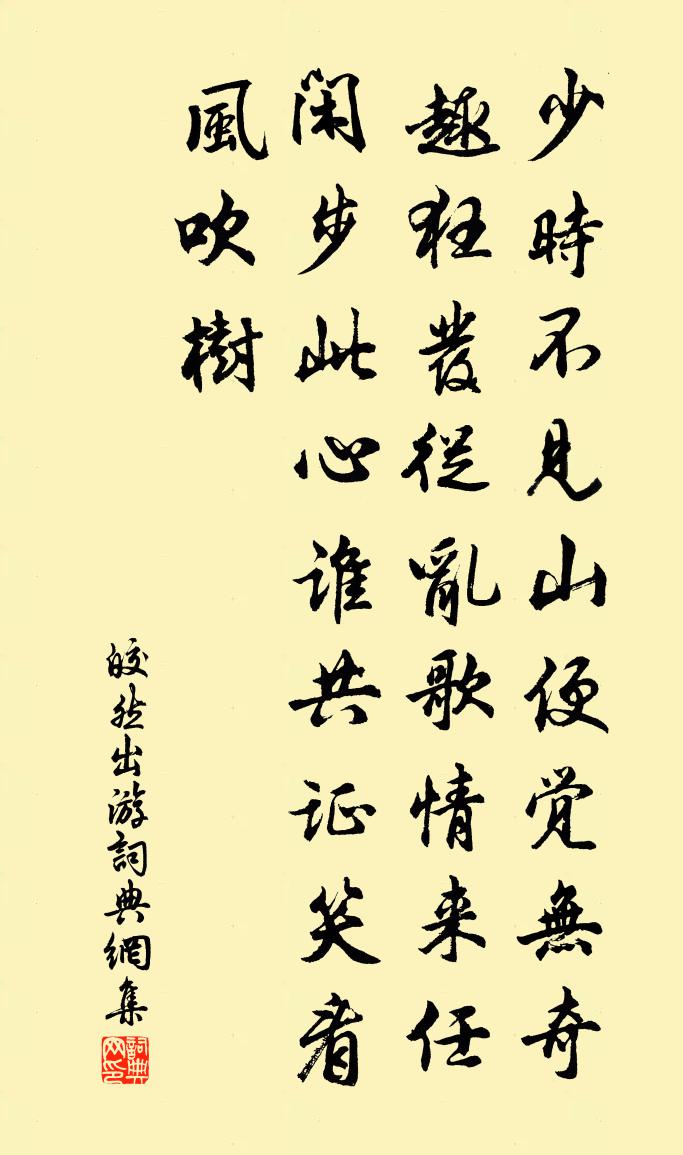 少時不見山便覚無奇
趣狂發從亂歌情来任
闲步此心誰共证笑看
風吹樹
皎然出游詞典網集
詞典网印